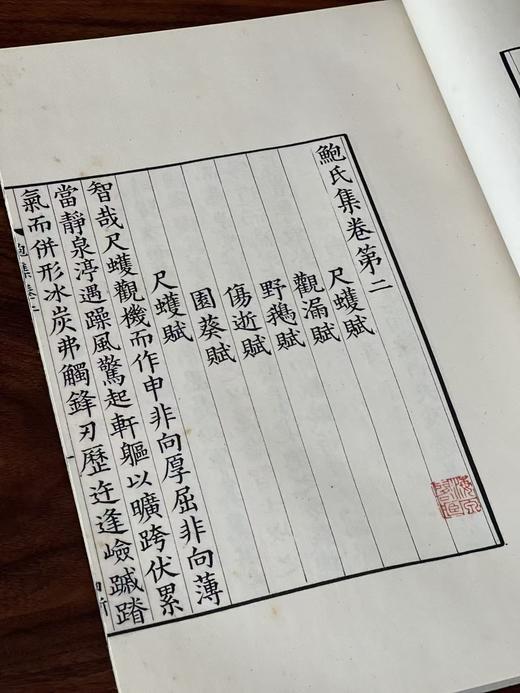 鮑氏集卷第二
尺蠖賦
觀漏賦
野鵝賦
傷逝賦
園葵賦
尺蠖賦
智哉尺蠖觀機而作申非向厚屈非向薄
當靜泉渟遇躁風驚起軒軀以曠跨伏累
氣而併形冰炭弗觸鋒刃歷迕逢嶮蹴蹐
鮑集卷二